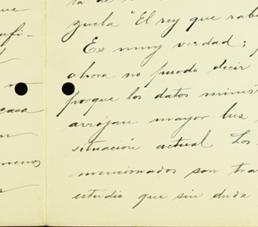 ufi-
casa
menos
zuela "El rey que rabi
Es muy verdad; p
ahora no puedo decir
porque los datos minis
arrojan mayor luz
situación actual Los
mencionados son tra
estudio que sin duda